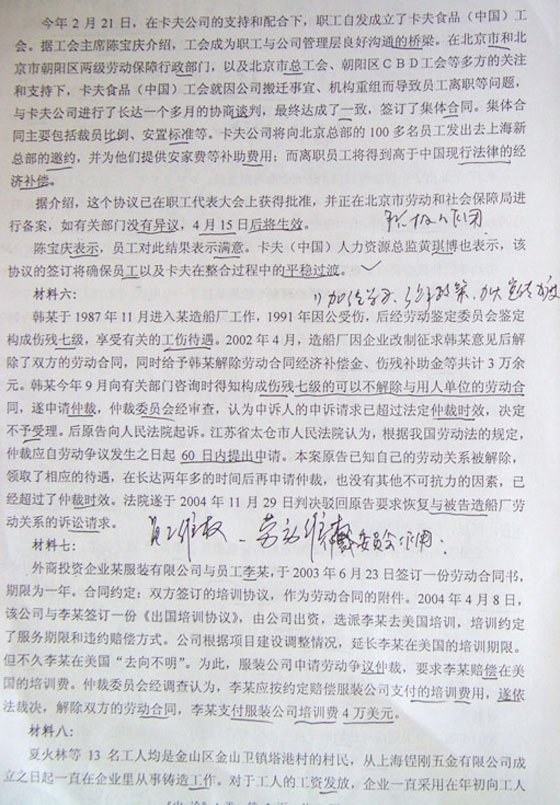 今年 2 月 21 日，在卡夫公司的支持和配合下，职工自发成立了卡夫食品（中国）工
会。据工会主席陈宝庆介绍，工会成为职工与公司管理层良好沟通的桥梁。在北京市和北
京市朝阳区两级劳动保障行政部门，以及北京市总工会、朝阳区ＣＢＤ工会等多方的关注
和支持下，卡夫食品（中国）工会就因公司搬迁事宜、机构重组而导致员工离职等问题，
与卡夫公司进行了长达一个多月的协商谈判，最终达成了一致，签订了集体合同。集体合
同主要包括裁员比例、安置标准等。卡夫公司将向北京总部的 100 多名员工发出去上海新
总部的邀约，并为他们提供安家费等补助费用；而离职员工将得到高于中国现行法律的经
济补偿。
据介绍，这个协议已在职工代表大会上获得批准，并正在北京市劳动和社会保障局进
行备案，如有关部门没有异议，4 月 15 日后将生效。
陈宝庆表示，员工对此结果表示满意。卡夫（中国）人力资源总监黄琪博也表示，该
协议的签订将确保员工以及卡夫在整合过程中的平稳过渡。
材料六：
韩某于 1987 年 11 月进入某造船厂工作，1991 年因公受伤，后经劳动鉴定委员会鉴定
构成伤残七级，享受有关的工伤待遇。2002 年 4 月，造船厂因企业改制征求韩某意见后解
除了双方的劳动合同，同时给予韩某解除劳动合同经济补偿金、伤残补助金等共计 3 万余
元。韩某今年 9 月向有关部门咨询时得知构成伤残七级的可以不解除与用人单位的劳动合
同，遂申请仲裁，仲裁委员会经审查，认为申诉人的申诉请求已超过法定仲裁时效，决定
不予受理。后原告向人民法院起诉。江苏省太仓市人民法院认为，根据我国劳动法的规定，
仲裁应自劳动争议发生之日起 60 日内提出申请。本案原告已知自己的劳动关系被解除，
领取了相应的待遇，在长达两年多的时间后再申请仲裁，也没有其他不可抗力的因素，已
经超过了仲裁时效。法院遂于 2004 年 11 月 29 日判决驳回原告要求恢复与被告造船厂劳
动关系的诉讼请求。
员工维权 委员会作用：
材料七：
外商投资企业某服装有限公司与员工李某，于 2003 年 6 月 23 日签订一份劳动合同书，
期限为一年。合同约定：双方签订的培训协议，作为劳动合同的附件。2004 年 4 月 8 日，
该公司与李某签订一份《出国培训协议》，由公司出资，选派李某去美国培训，培训约定
了服务期限和违约赔偿方式。公司根据项目建设调整情况，延长李某在美国的培训期限。
但不久李某在美国“去向不明”。为此，服装公司申请劳动争议仲裁，要求李某赔偿在美
国的培训费。仲裁委员会经调查认为，李某应按约定赔偿服装公司支付的培训费用，遂依
法裁决，解除双方的劳动合同，李某支付服装公司培训费 4 万美元。
材料八：
夏火林等 13 名工人均是金山区金山卫镇塔港村的村民，从上海铿刚五金有限公司成
立之日起一直在企业里从事铸造工作。对于工人的工资发放，企业一直采用在年初向工人